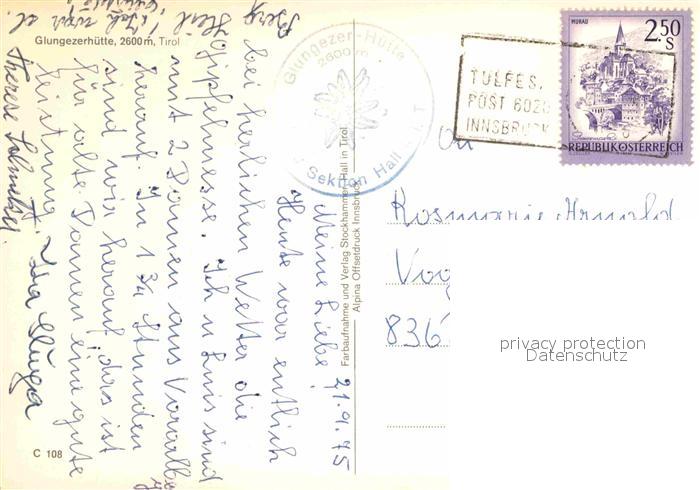 Glungezerhütte, 2600 m, Tirol
Glungezer-Hütte
2600 m
Sektion Hall
TULFES,
POST 6020
INNSBRUCK
MURAU
2.50
S
REPUBLIK ÖSTERREICH
Farbaufnahme und Verlag Stockhammer, Hall in Tirol
Alpina Offsetdruck Innsbruck
C 108
21.9.75
Meine Liebe!
Heute war entlich
bei herlichen Wetter die
Gipfelmesse. Ich u Luis sind
mit 2 Damen aus Vorarlb
herauf. In 1 3/4 Stunden
sind wir herauf, das ist
für alte Damen eine gute
Leistung
Berg
Heil
Therese
An
Rosmarie Arnold
836
privacy protection
Datenschutz